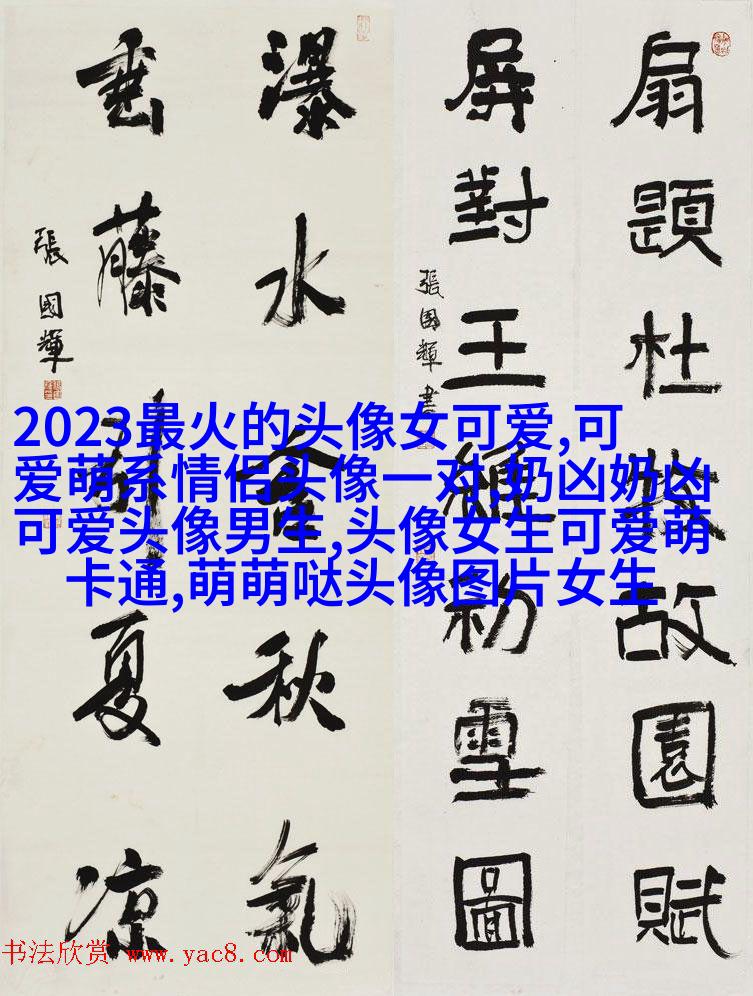 扇題杜故園賦
屏對王維初雪圖
張國輝書
瀑水含秋氣
垂藤引夏凉
張國輝
2023最火的头像女可爱,可
爱萌系情侣头像一对,奶凶奶凶
可爱头像男生,头像女生可爱萌
卡通,萌萌哒头像图片女生
书法欣赏 www.yac8.com